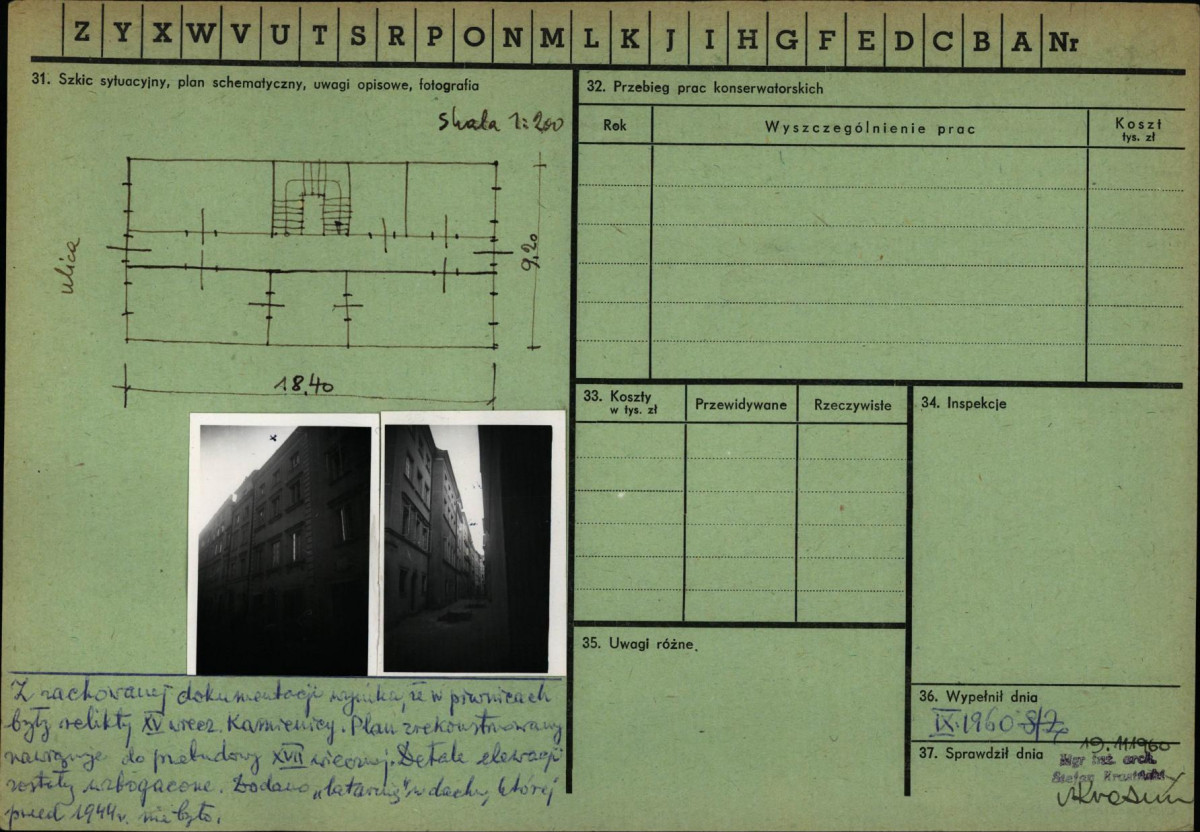 Z Y X W V U T S R P O N M L K J I H G F E D C B A Nr
31. Szkic sytuacyjny, plan schematyczny, uwagi opisowe, fotografia
Skala 1:200
ulica
9,20
18,40
Z zachowanej dokumentacji wynika, że w piwnicach
były relikty XV wiecz. Kamienicy. Plan zrekonstruowany
nawiązuje do przebudowy XVII wiecznej. Detale elewacji
zostały wzbogacone. Dodano „latarnię” w dachu, której
przed 1944 r. nie było.
32. Przebieg prac konserwatorskich
Rok
Wyszczególnienie prac
Koszt
tys. zł
33. Koszty
w tys. zł
Przewidywane
Rzeczywiste
34. Inspekcje
35. Uwagi różne
36. Wypełnił dnia
IX.1960
37. Sprawdził dnia
19.11.1960
Mgr inż. arch.